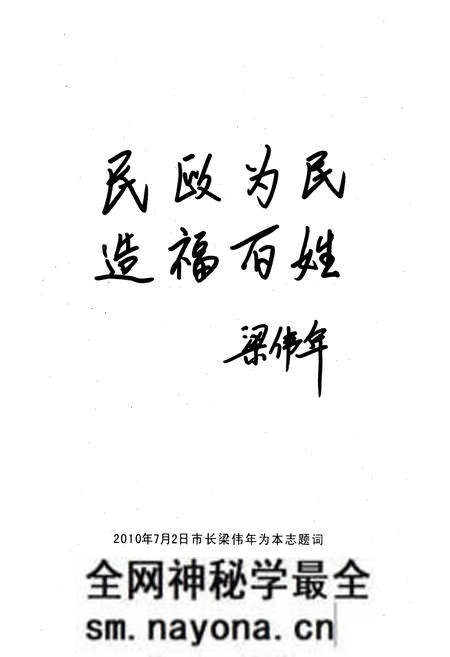 民政为民
造福百姓
梁伟年
2010年7月2日市长梁伟年为本志题词
全网神秘学最全
sm.nayona.cn